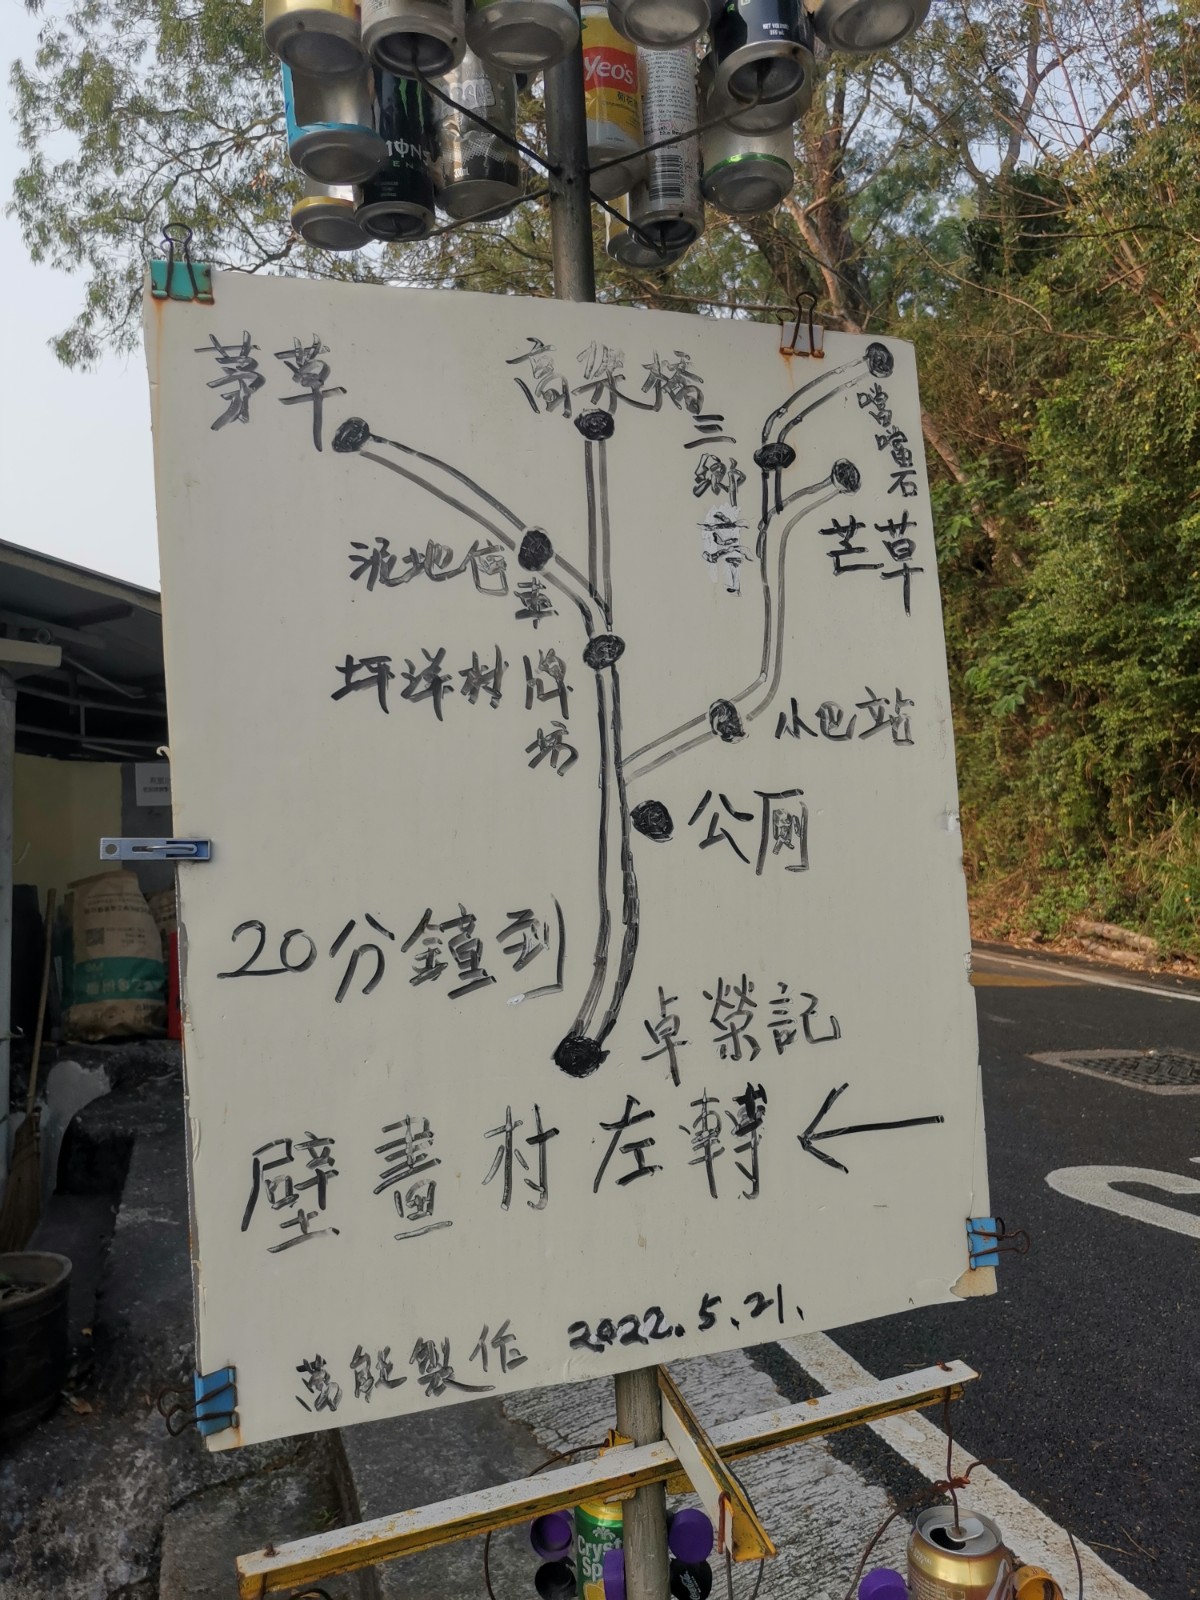 Yeo's
茅草
高架橋
三鄉亭
噹噹石
芒草
泥地停車
坪洋村牌坊
小巴站
公厕
20分鐘到
卓榮記
壁畫村左轉 ←
萬能製作 2022.5.21.